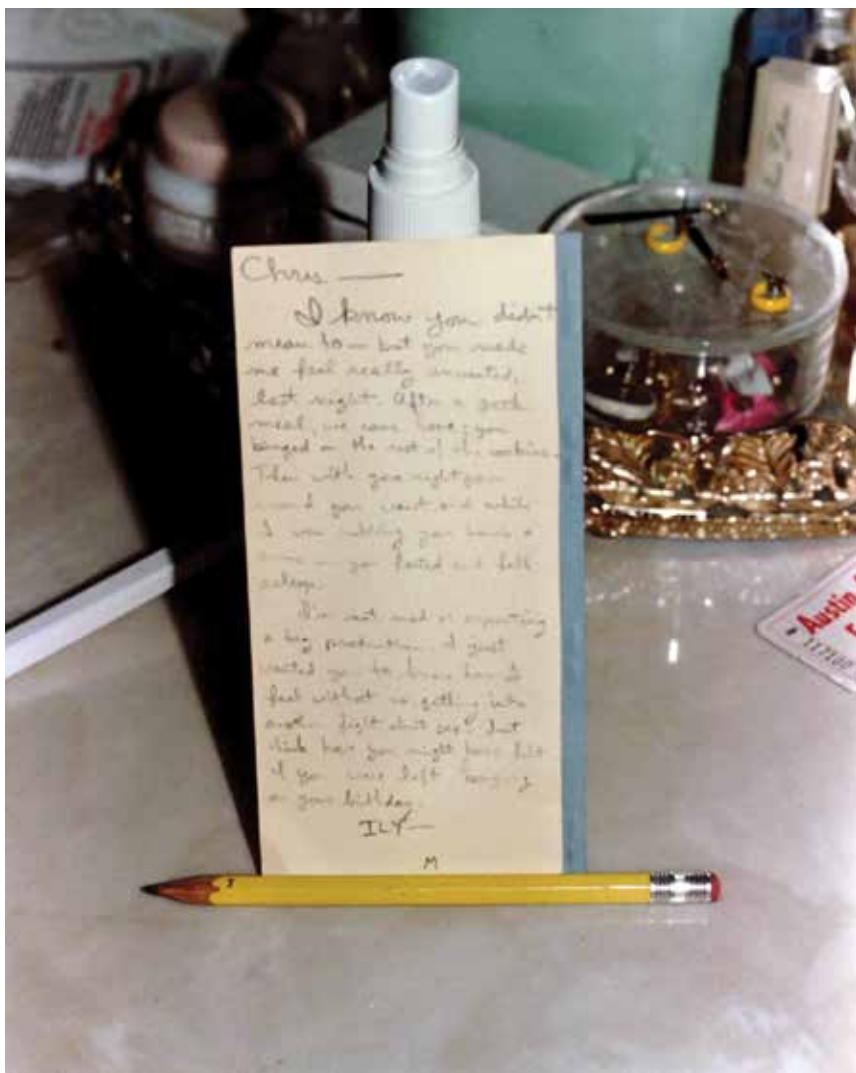 Chris —
I know you didn't
mean to — but you made
me feel really unwanted,
last night. After a good
meal, we came home; you
binged on the rest of the cookies.
Then with your nightgown
around your waist and while
I was rubbing your hands &
you farted and fell
asleep.
I'm not mad or expecting
a big production. I just
wanted you to know how I
feel without us getting into
another fight about sex. Just
think how you might have felt
if you were left hanging
on your birthday.
ILY —
M
Austin
117100